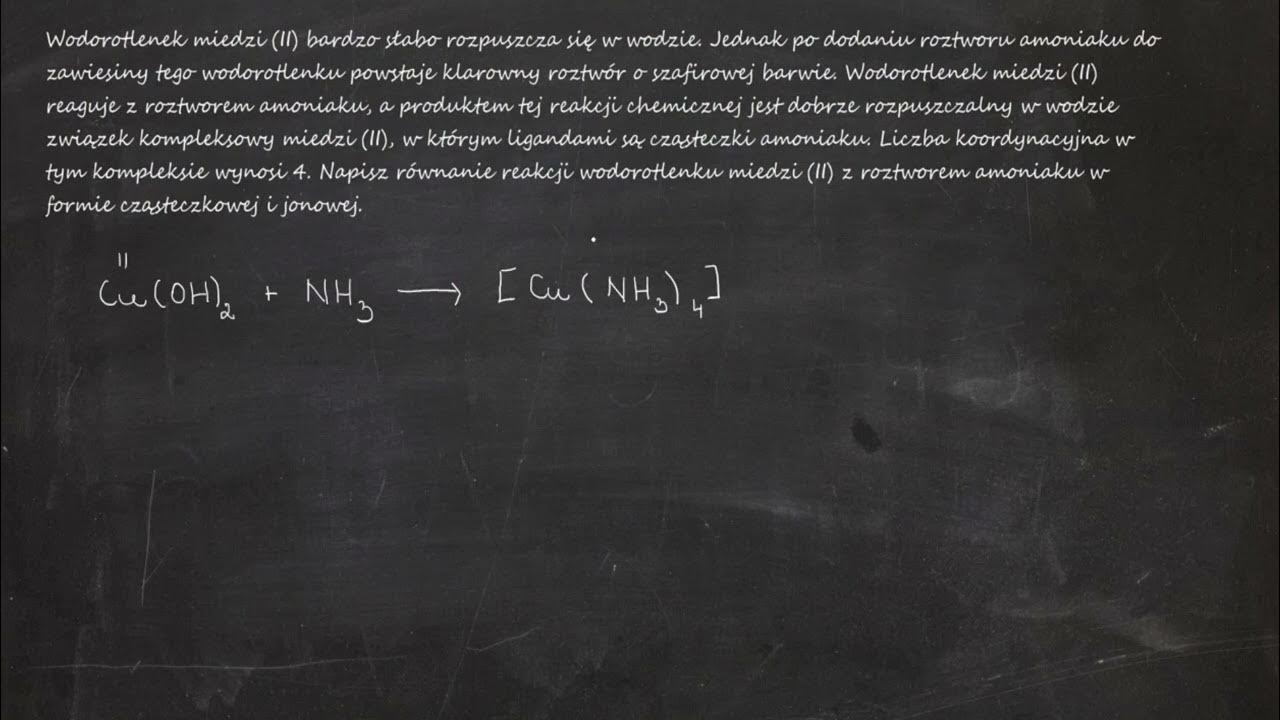 Wodorotlenek miedzi (II) bardzo słabo rozpuszcza się w wodzie. Jednak po dodaniu roztworu amoniaku do
zawiesiny tego wodorotlenku powstaje klarowny roztwór o szafirowej barwie. Wodorotlenek miedzi (II)
reaguje z roztworem amoniaku, a produktem tej reakcji chemicznej jest dobrze rozpuszczalny w wodzie
związek kompleksowy miedzi (II), w którym ligandami są cząsteczki amoniaku. Liczba koordynacyjna w
tym kompleksie wynosi 4. Napisz równanie reakcji wodorotlenku miedzi (II) z roztworem amoniaku w
formie cząsteczkowej i jonowej.
II
Cu(OH)₂ + NH₃ ⟶ [Cu(NH₃)₄]